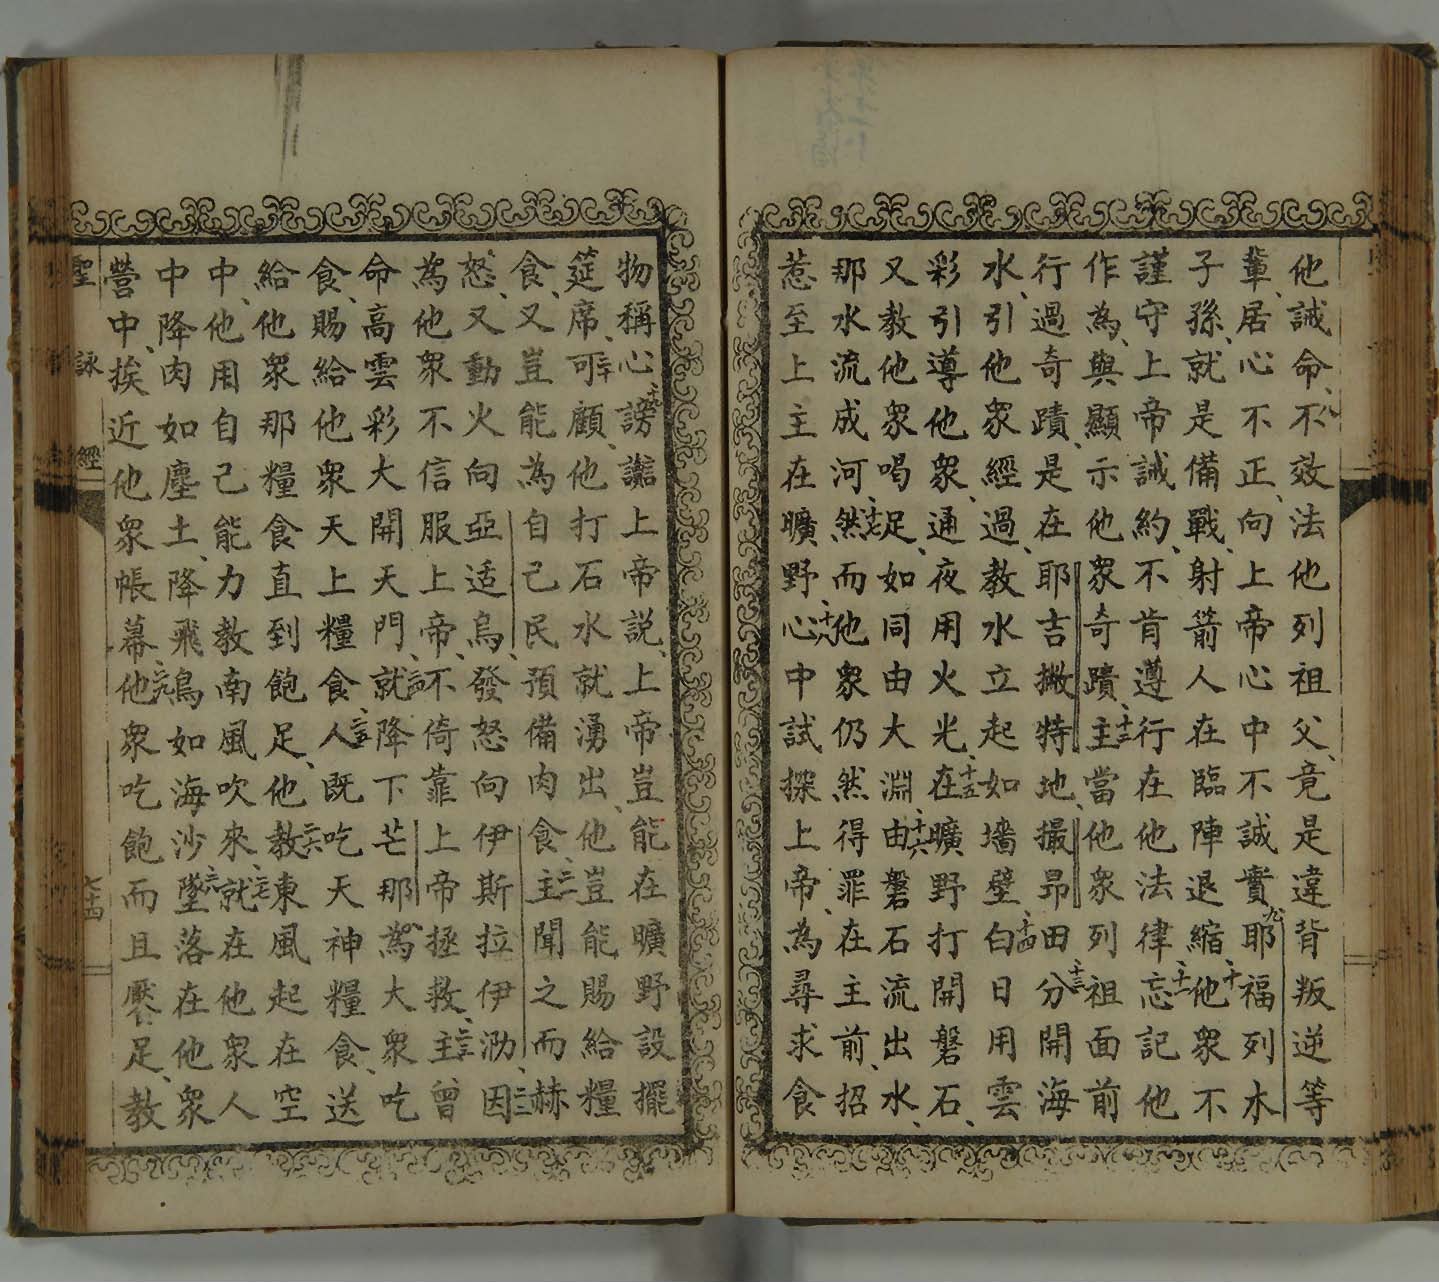 他誡命、八不效法他列祖父、竟是違背叛逆等
輩、居心不正、向上帝心中不誠實、九耶福列木
子孫、就是備戰、射箭人在臨陣退縮、十他衆不
謹守上帝誡約、不肯遵行在他法律、十一忘記他
作為、與顯示他衆奇蹟、十二主當他衆列祖面前
行過奇蹟、是在耶吉撇特地、撮昻田、十三分開海
水、引他衆經過、教水立起如墻壁、十四白日用雲
彩引導他衆、通夜用火光、十五在曠野打開磐石、
又教他衆喝足、如同由大淵、十六由磐石流出水、
那水流成河、十七然而他衆仍然得罪在主前、招
惹至上主在曠野、十八心中試探上帝、為尋求食
物稱心、十九謗讟上帝説、上帝豈能在曠野設擺
筵席、二十可顧他打石水就湧出、他豈能賜給糧
食、又豈能為自己民預備肉食、二一主聞之而赫
怒、又動火向亞适烏、發怒向伊斯拉伊泐、二二因
為他衆不信服上帝、不倚靠上帝拯救、二三主曾
命高雲彩大開天門、二四就降下芒那、為大衆吃
食、賜給他衆天上糧食、二五人既吃天神糧食、送
給他衆那糧食直到飽足、二六他教東風起在空
中、他用自己能力教南風吹來、二七就在他衆人
中降肉如塵土、降飛鳥如海沙、二八墜落在他衆
營中、挨近他衆帳幕、二九他衆吃飽而且饜足、教
聖詠經
七十四